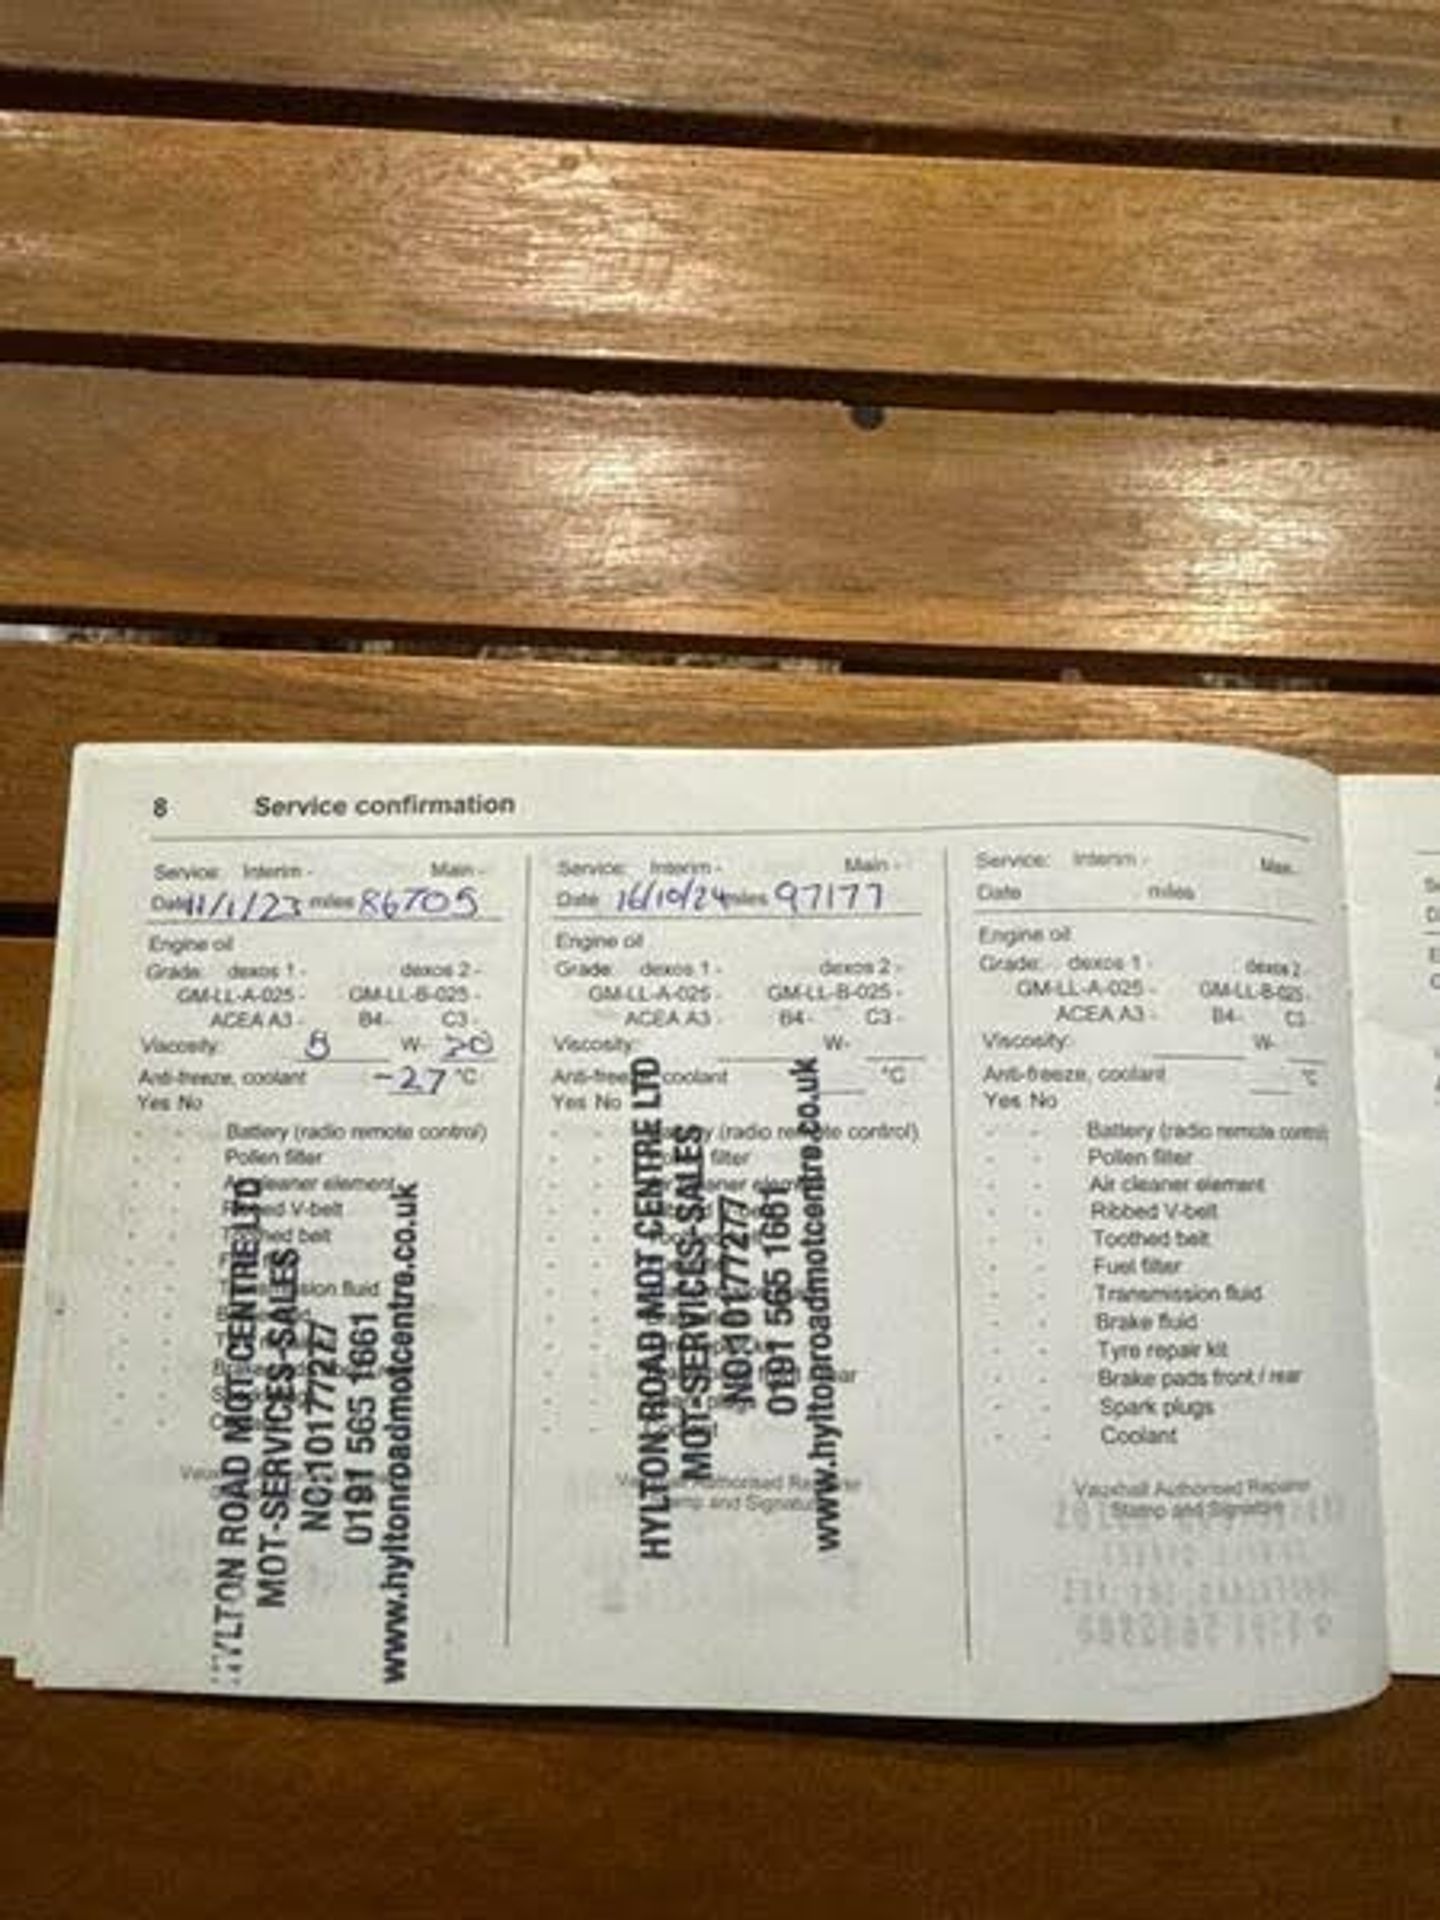 8 Service confirmation
Service: Interim - Main -
Date 11/1/23 miles 86705
Engine oil
Grade: dexos 1 - dexos 2 -
GM-LL-A-025 - GM-LL-B-025 -
ACEA A3 - B4 - C3 -
Viscosity: 5 W-
Anti-freeze, coolant -27 °C
Yes No
- - Battery (radio remote control)
- - Pollen filter
cleaner element
V-belt
belt
fluid
HYLTON ROAD MOT CENTRE LTD
MOT-SERVICES-SALES
NO:10177277
0191 565 1661
www.hyltonroadmotcentre.co.uk
Service: Interim - Main -
Date 16/10/24 miles 97177
Engine oil
Grade: dexos 1 - dexos 2 -
GM-LL-A-025 - GM-LL-B-025 -
ACEA A3 - B4 - C3 -
Viscosity: W-
Anti-freeze, coolant °C
Yes No
(radio remote control)
filter
HYLTON ROAD MOT CENTRE LTD
MOT-SERVICES-SALES
NO:10177277
0191 565 1661
www.hyltonroadmotcentre.co.uk
Authorised Repairer
Stamp and Signature
Service: Interim - Main -
Date miles
Engine oil
Grade: dexos 1 - dexos 2 -
GM-LL-A-025 - GM-LL-B-025 -
ACEA A3 - B4 - C3
Viscosity: W-
Anti-freeze, coolant °C
Yes No
- - Battery (radio remote control)
- - Pollen filter
- - Air cleaner element
- - Ribbed V-belt
- - Toothed belt
- - Fuel filter
- - Transmission fluid
- - Brake fluid
- - Tyre repair kit
- - Brake pads front / rear
- - Spark plugs
- - Coolant
Vauxhall Authorised Repairer
Stamp and Signature